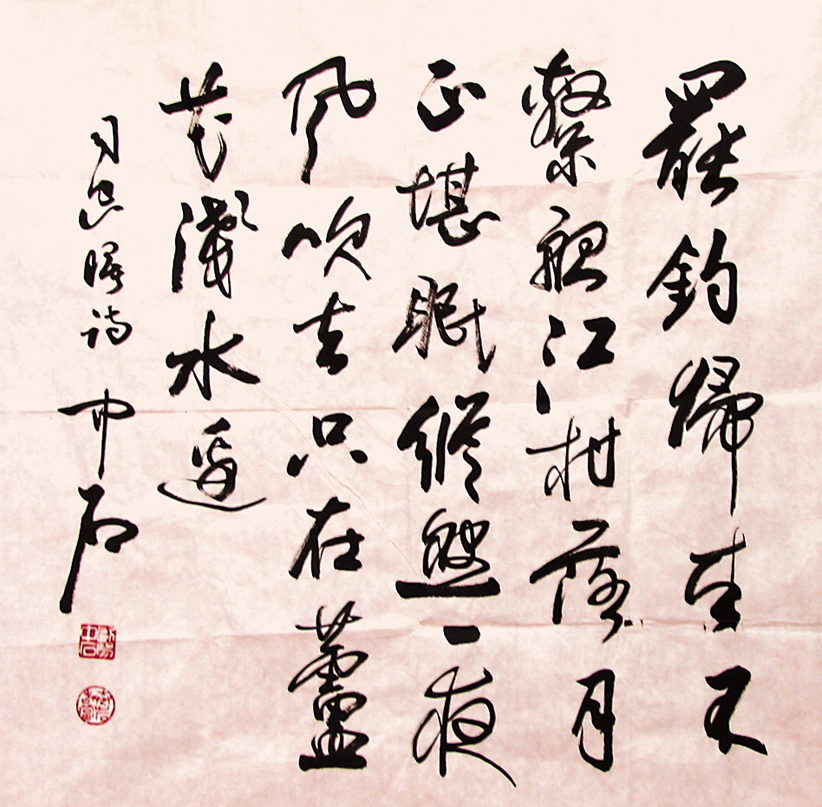 罷釣歸來不
繫船江村落月
正堪眠縱然一夜
風吹去只在蘆
花淺水邊
司空曙詩 中石
歐陽中石